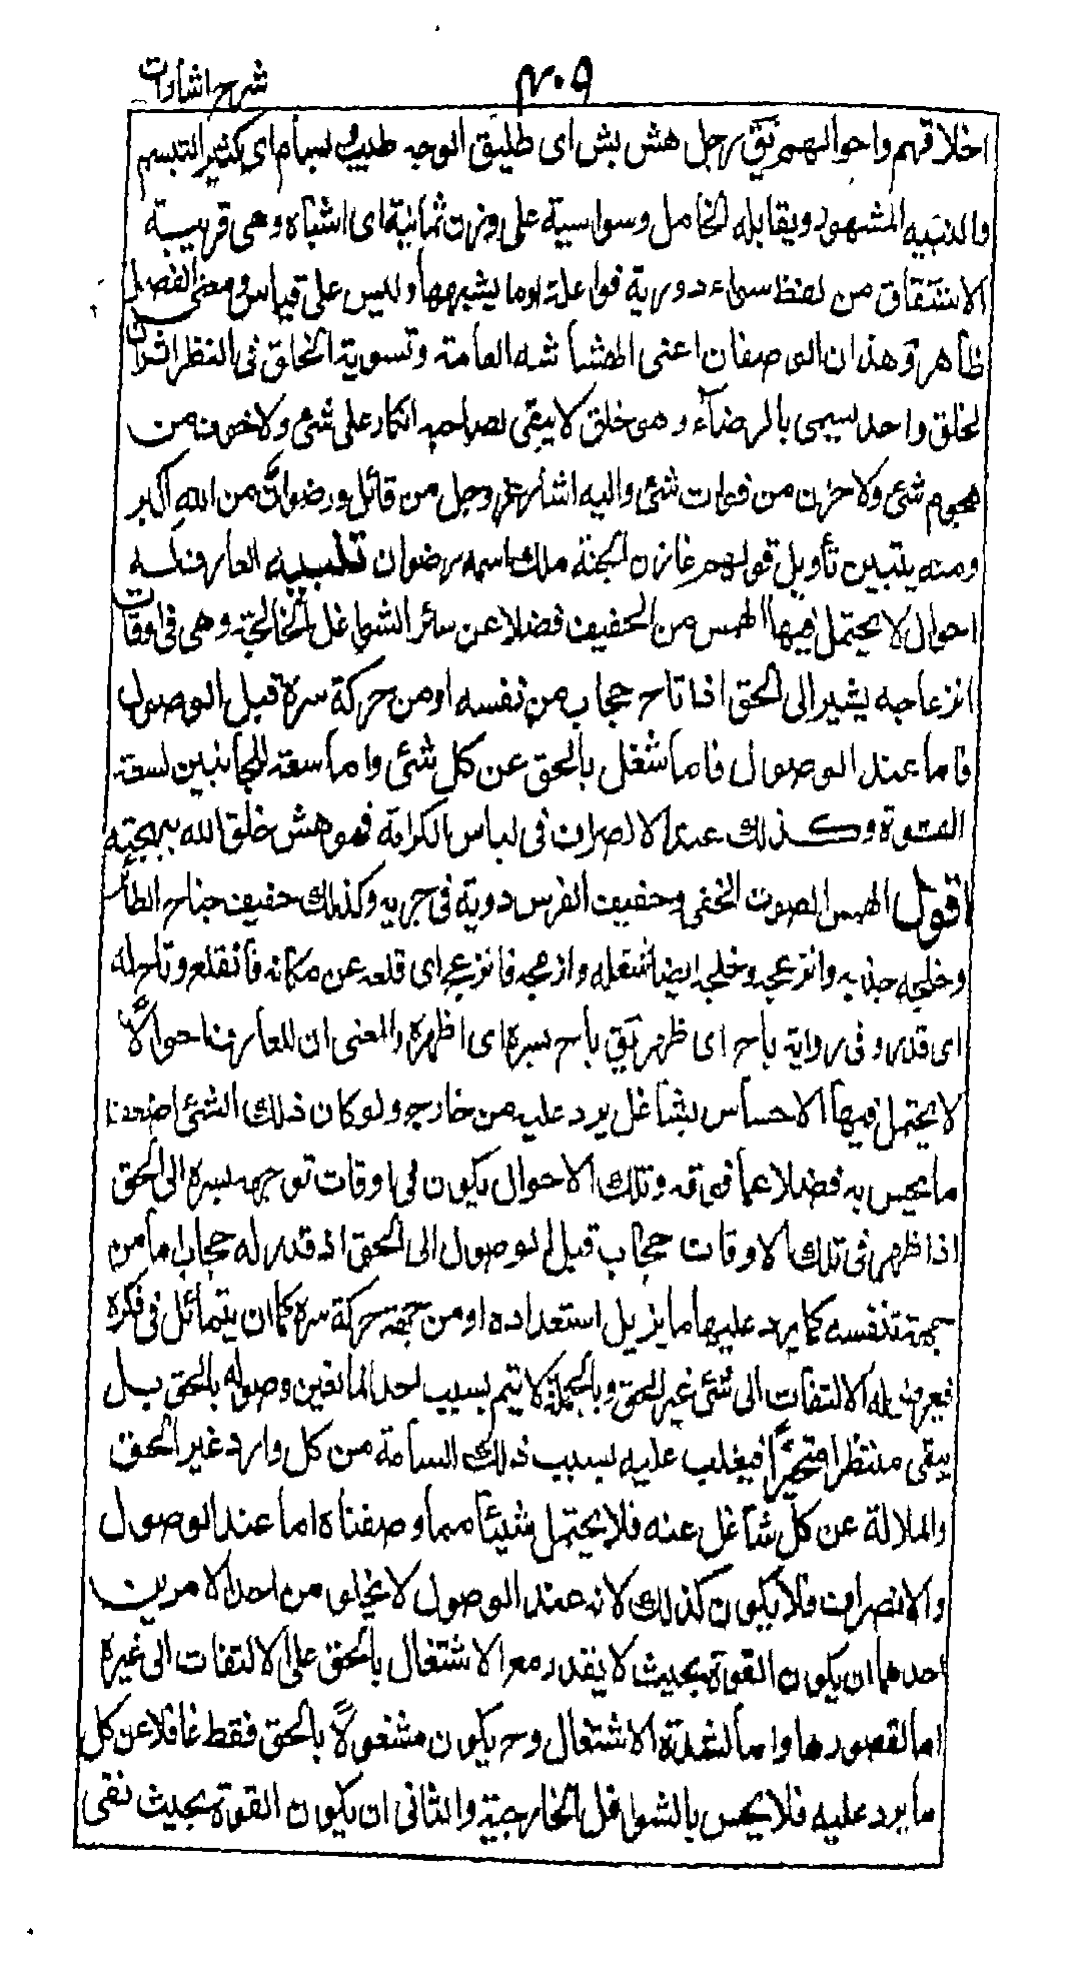 شرح اشارات
۴۰۹
اخلاقهم واحوالهم يق رجل هش بش اى طليق الوجه طيب بسام اى كثير التبسم
والنبيه المشهور ويقابله الخامل وسواسية على وزن ثمانية اى اشباه وهى قريبة
الاشتقاق من لفظ سواء ووزنه فواعلة او ما يشبهها وليس على قياس ومعنى الفصل
ظاهر وهذان الوصفان اعنى الهشاشة العامة وتسوية الخلق فى النظر اثران
لخلق واحد يسمى بالرضاء وهو خلق لا يبقى لصاحبه انكار على شئ ولا خوف من
هجوم شئ ولا حزن من فوات شئ واليه اشار عز وجل من قائل ورضوان من الله اكبر
ومنه يتبين تأويل قولهم خازن الجنة ملك اسمه رضوان تنبيه العارف له
احوال لا يحتمل فيها الهمس من الحفيف فضلا عن سائر الشواغل الخالجة وهى فى اوقات
انزعاجه بسره الى الحق اذا تاح حجاب من نفسه او من حركة سره قبل الوصول
فاما عند الوصول فاما شغل بالحق عن كل شئ واما سعة للجانبين لسعة
القوة وكذلك عند الانصراف فى لباس الكرامة فهو هش خلق الله ببهجته
اقول الهمس الصوت الخفى وحفيف الفرس دويه فى جريه وكذلك حفيف جناح الطائر
وخلجه جذبه وانتزعه وخلجه ايضا شغله وازعجه فانزعج اى قلعه عن مكانه فانقلع وتاح له
اى قدر وفى رواية باح اى ظهر يق باح بسره اى اظهره والمعنى ان للعارف احوالا
لا يحتمل فيها الاحساس بشاغل يرد عليه من خارج ولو كان ذلك الشئ اضعف
ما يحس به فضلا عما فوقه وتلك الاحوال يكون فى اوقات توجهه بسره الى الحق
اذا ظهر فى تلك الاوقات حجاب قبل الوصول الى الحق اذ قدر له حجاب اما من
جهة نفسه كما يرد عليها ما يزيل استعداده او من جهة حركة سره كما ان يتمائل فى فكره
فيعرض له الالتفات الى شئ غير الحق وبالجملة لا يتم بسبب احد المانعين وصوله بالحق بل
يبقى منتظرا متحيرا فيغلب عليه بسبب ذلك السامة من كل وارد غير الحق
والملالة عن كل شاغل عنه فلا يحتمل شيئا مما وصفناه اما عند الوصول
والانصراف فلا يكون كذلك لانه عند الوصول لا يخلو من احد الامرين
احدهما ان يكون القوة بحيث لا يقدر مع الاشتغال بالحق على الالتفات الى غيره
اما لقصورها واما لشدة الاشتغال وح يكون مشغولا بالحق فقط غافلا عن كل
ما يرد عليه فلا يحس بالشواغل الخارجية والثانى ان يكون القوة بحيث تفى